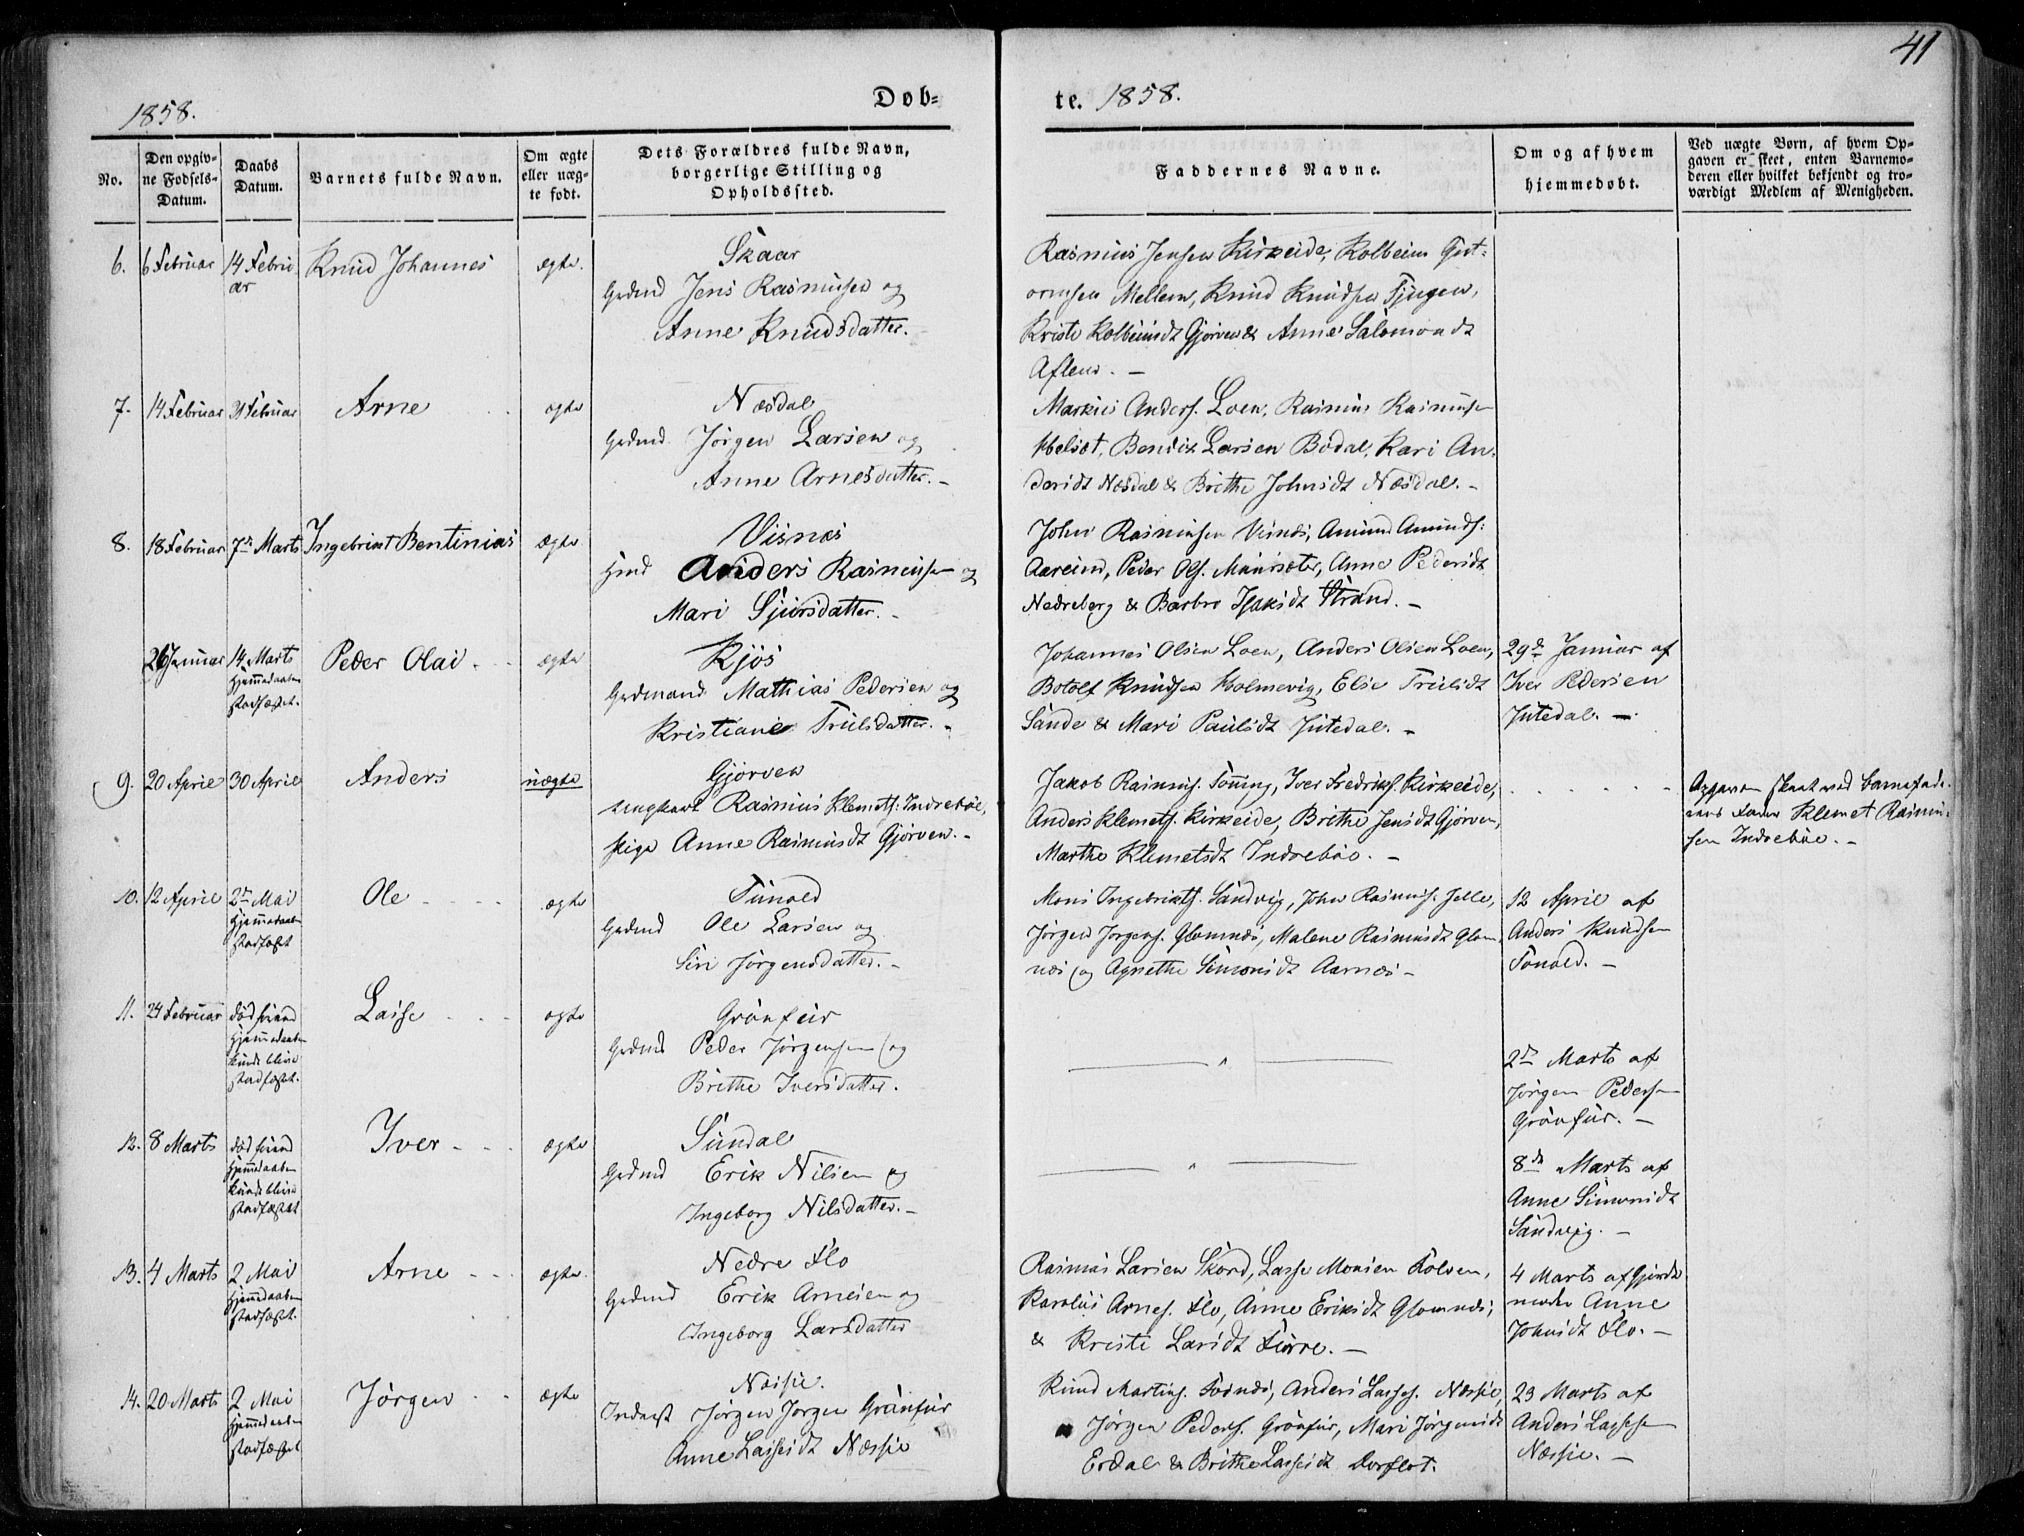 41
1858.
Døb-
te. 1858.
No.
Den opgiv-
ne Fødsels-
Datum.
Daabs
Datum.
Barnets fulde Navn.
Om ægte
eller uæg-
te født.
Dets Forældres fulde Navn,
borgerlige Stilling og
Opholdssted.
Faddernes Navne.
Om og af hvem
hjemmedøbt.
Ved uægte Børn, af hvem Op-
gaven er skeet, enten Barnemo-
deren eller hvilket bekjendt og tro-
værdigt Medlem af Menigheden.
6. 6 Februar 14 Febru
ar
Knud Johannes
ægte.
Skaar
Gdmd Jens Rasmusen og
Anne Knudsdatter.
Rasmus Jensen Kirkeide, Kolbein Gut-
ormsen Mellem, Knud Knudsen Tjugen,
Kristi Kolbeinsdt Gjørven & Anne Salomonsdt
Aflem. -
7. 14 Februar 21 Februar
Arne
ægte
Næsdal
Gdmd Jørgen Larsen og
Anne Arnesdatter. -
Markus Anders. Loen, Rasmus Rasmusen
Helset, Bendix Larsen Bødal, Kari An-
dersdt Næsdal & Brithe Johnsdt Næsdal. -
8. 18 Februar 7de Marts
Ingebrigt Bentinius
ægte
Visnæs
Hmd Anders Rasmusen og
Mari Sjursdatter. -
John Rasmusen Visnæs, Amund Amunds.
Aareim, Peder Ols. Maursæter, Anne Pedersdt
Nedreberg & Barbro Isaksdt Strand. -
26 Januar 14 Marts
Hjemmedaaben
stadfæstet.
Peder Olai
ægte
Kjøs
Gaardmand Mathias Pedersen og
Kristiane Trulsdatter. -
Johannes Olsen Loen, Anders Olsen Loen,
Botolf Knudsen Holmevig, Else Trulsdt
Sande & Mari Paulsdt Jutedal. -
29de Januar af
Iver Pedersen
Jutedal. -
9. 20 April 30 April
Anders
uægte
Gjørven
ungkarl Rasmus Klemets. Indrebøe,
pige Anne Rasmusdt Gjørven. -
Jakob Rasmus. Tønning, Iver Fredriks. Kirkeide,
Anders Klemets. Kirkeide, Brithe Jensdt Gjørven,
Marthe Klemetsdt Indrebøe. -
Opgaven skeet ved barnefade-
rens Fader Klemet Rasmu-
sen Indrebøe. -
10. 12 April 2den Mai
Hjemmedaaben
stadfæstet
Ole
ægte
Tunold
Gdmd Ole Larsen og
Siri Jørgensdatter. -
Mons Ingebrikts. Sandvig, John Rasmus. Jelle,
Jørgen Jørgens. Glomnæs, Malene Rasmusdt Glom-
næs og Agnethe Simonsdt Aarnæs -
12 April af
Anders Knudsen
Tonold. -
11. 24 Februar død førend
Hjemmedaaben
kunde blive
stadfæstet.
Lasse
ægte
Grönfur
Gdmd Peder Jørgensen og
Brithe Iversdatter.
"
2den Marts af
Jørgen Pedersen
Grönfur. -
12. 8 Marts død førend
Hjemmedaaben
kunde blive
stadfæstet
Iver
ægte
Sundal
Gdmd Erik Nilsen og
Ingeborg Nilsdatter. -
"
8de Marts af
Anne Simonsdt
Sandvig. -
13. 4 Marts 2 Mai
Hjemmedaaben
stadfæstet.
Arne
ægte.
Nedre Flo
Gdmd Erik Arnesen og
Ingeborg Larsdatter
Rasmus Larsen Skord, Lasse Monsen Kolven,
Karolus Arnes. Flo, Anne Eriksdt Glomnæs,
& Kristi Larsdt Furre. -
4 Marts af Gjorde
moder Anne
Johnsdt Flo. -
14. 20 Marts 2 Mai
Hjemmedaaben
stadfæstet
Jørgen
ægte
Næssje.
Inderst Jørgen Jørgen Grönfur
Anne Lassesdt Næssje
Knud Martins. Tvinnæs, Anders Lasses. Næssje,
Jørgen Peders. Grönfur, Mari Jørgensdt
Erdal & Brithe Lassesdt Dorflot.
23 Marts af
Anders Lassesen
Næssje. -